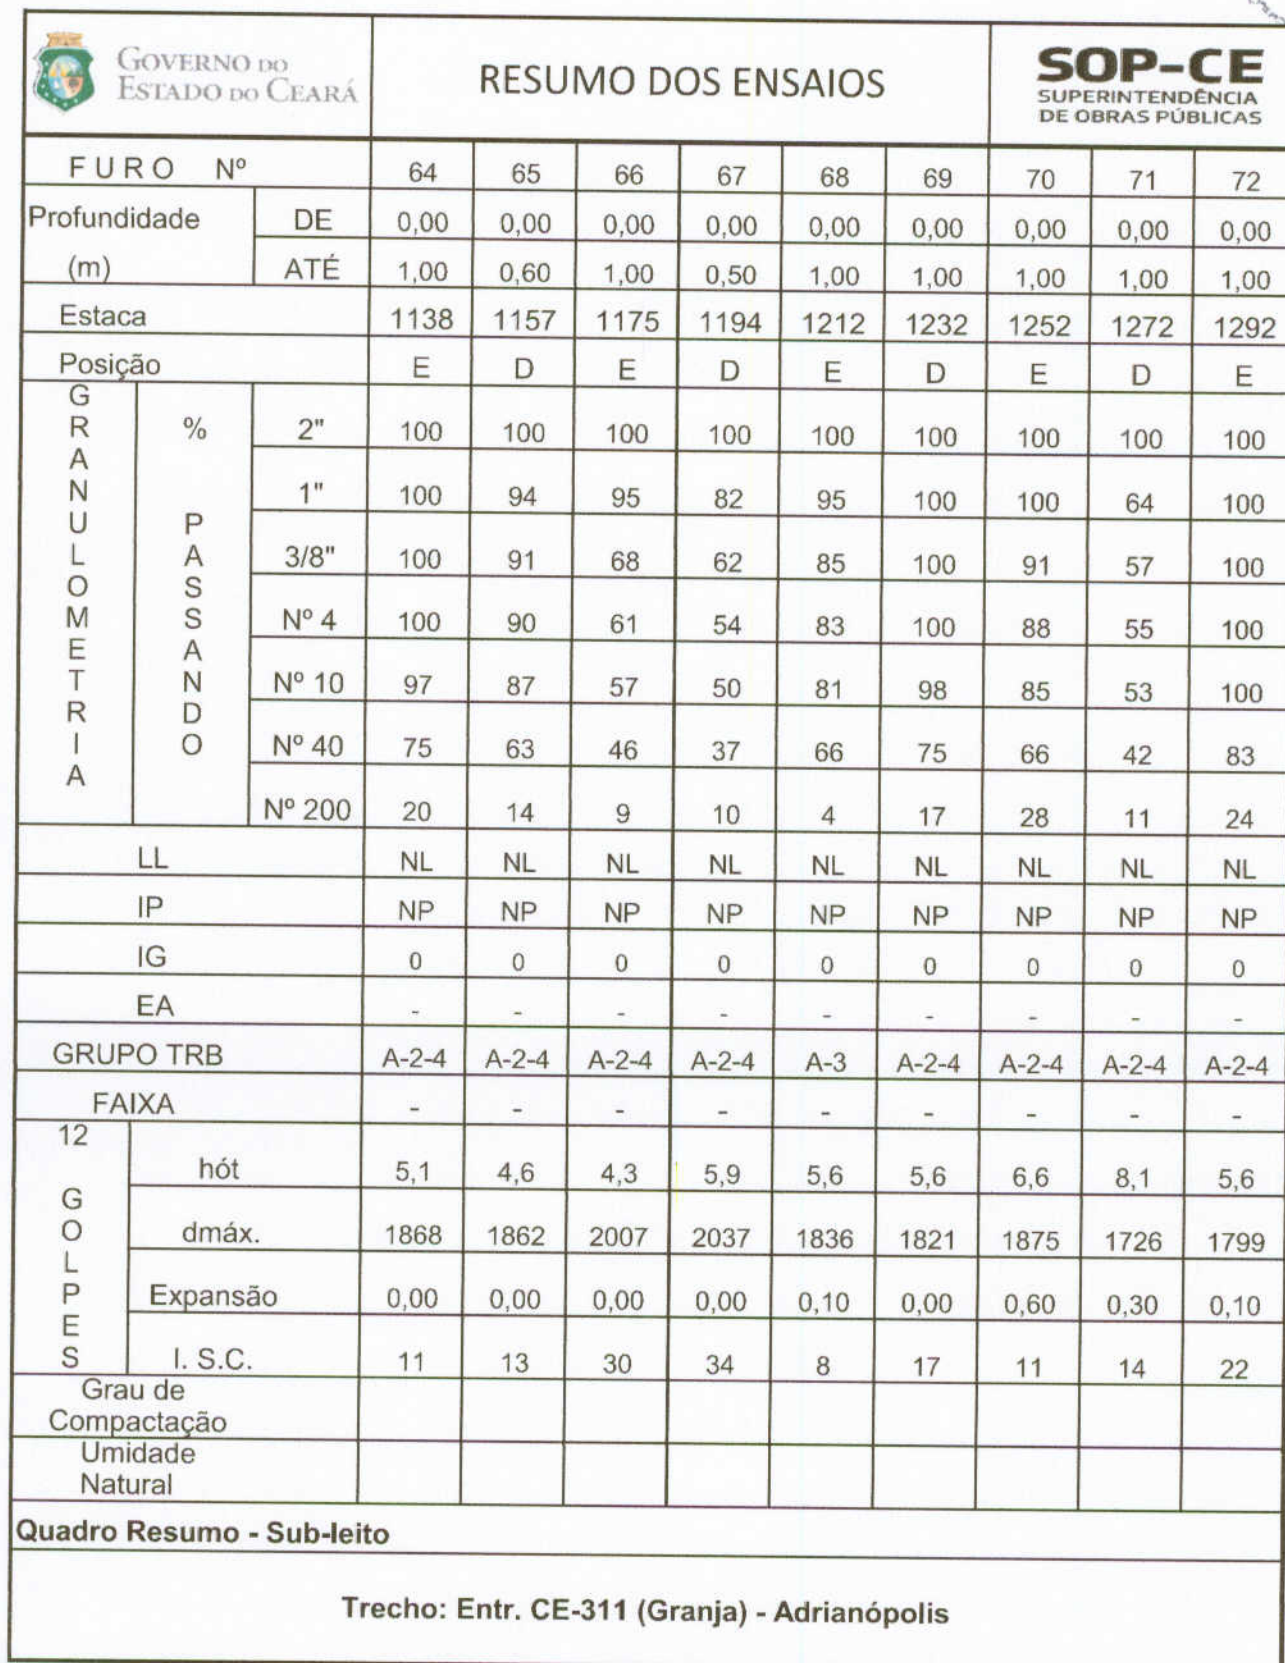 GOVERNO DO
ESTADO DO CEARÁ
RESUMO DOS ENSAIOS
SOP-CE
SUPERINTENDÊNCIA
DE OBRAS PÚBLICAS
FURO Nº 64 65 66 67 68 69 70 71 72
Profundidade (m) DE 0,00 0,00 0,00 0,00 0,00 0,00 0,00 0,00 0,00
ATÉ 1,00 0,60 1,00 0,50 1,00 1,00 1,00 1,00 1,00
Estaca 1138 1157 1175 1194 1212 1232 1252 1272 1292
Posição E D E D E D E D E
GRANULOMETRIA
% PASSANDO
2" 100 100 100 100 100 100 100 100 100
1" 100 94 95 82 95 100 100 64 100
3/8" 100 91 68 62 85 100 91 57 100
Nº 4 100 90 61 54 83 100 88 55 100
Nº 10 97 87 57 50 81 98 85 53 100
Nº 40 75 63 46 37 66 75 66 42 83
Nº 200 20 14 9 10 4 17 28 11 24
LL NL NL NL NL NL NL NL NL NL
IP NP NP NP NP NP NP NP NP NP
IG 0 0 0 0 0 0 0 0 0
EA - - - - - - - - -
GRUPO TRB A-2-4 A-2-4 A-2-4 A-2-4 A-3 A-2-4 A-2-4 A-2-4 A-2-4
FAIXA - - - - - - - - -
12 GOLPES
hót 5,1 4,6 4,3 5,9 5,6 5,6 6,6 8,1 5,6
dmáx. 1868 1862 2007 2037 1836 1821 1875 1726 1799
Expansão 0,00 0,00 0,00 0,00 0,10 0,00 0,60 0,30 0,10
I. S.C. 11 13 30 34 8 17 11 14 22
Grau de
Compactação
Umidade
Natural
Quadro Resumo - Sub-leito
Trecho: Entr. CE-311 (Granja) - Adrianópolis